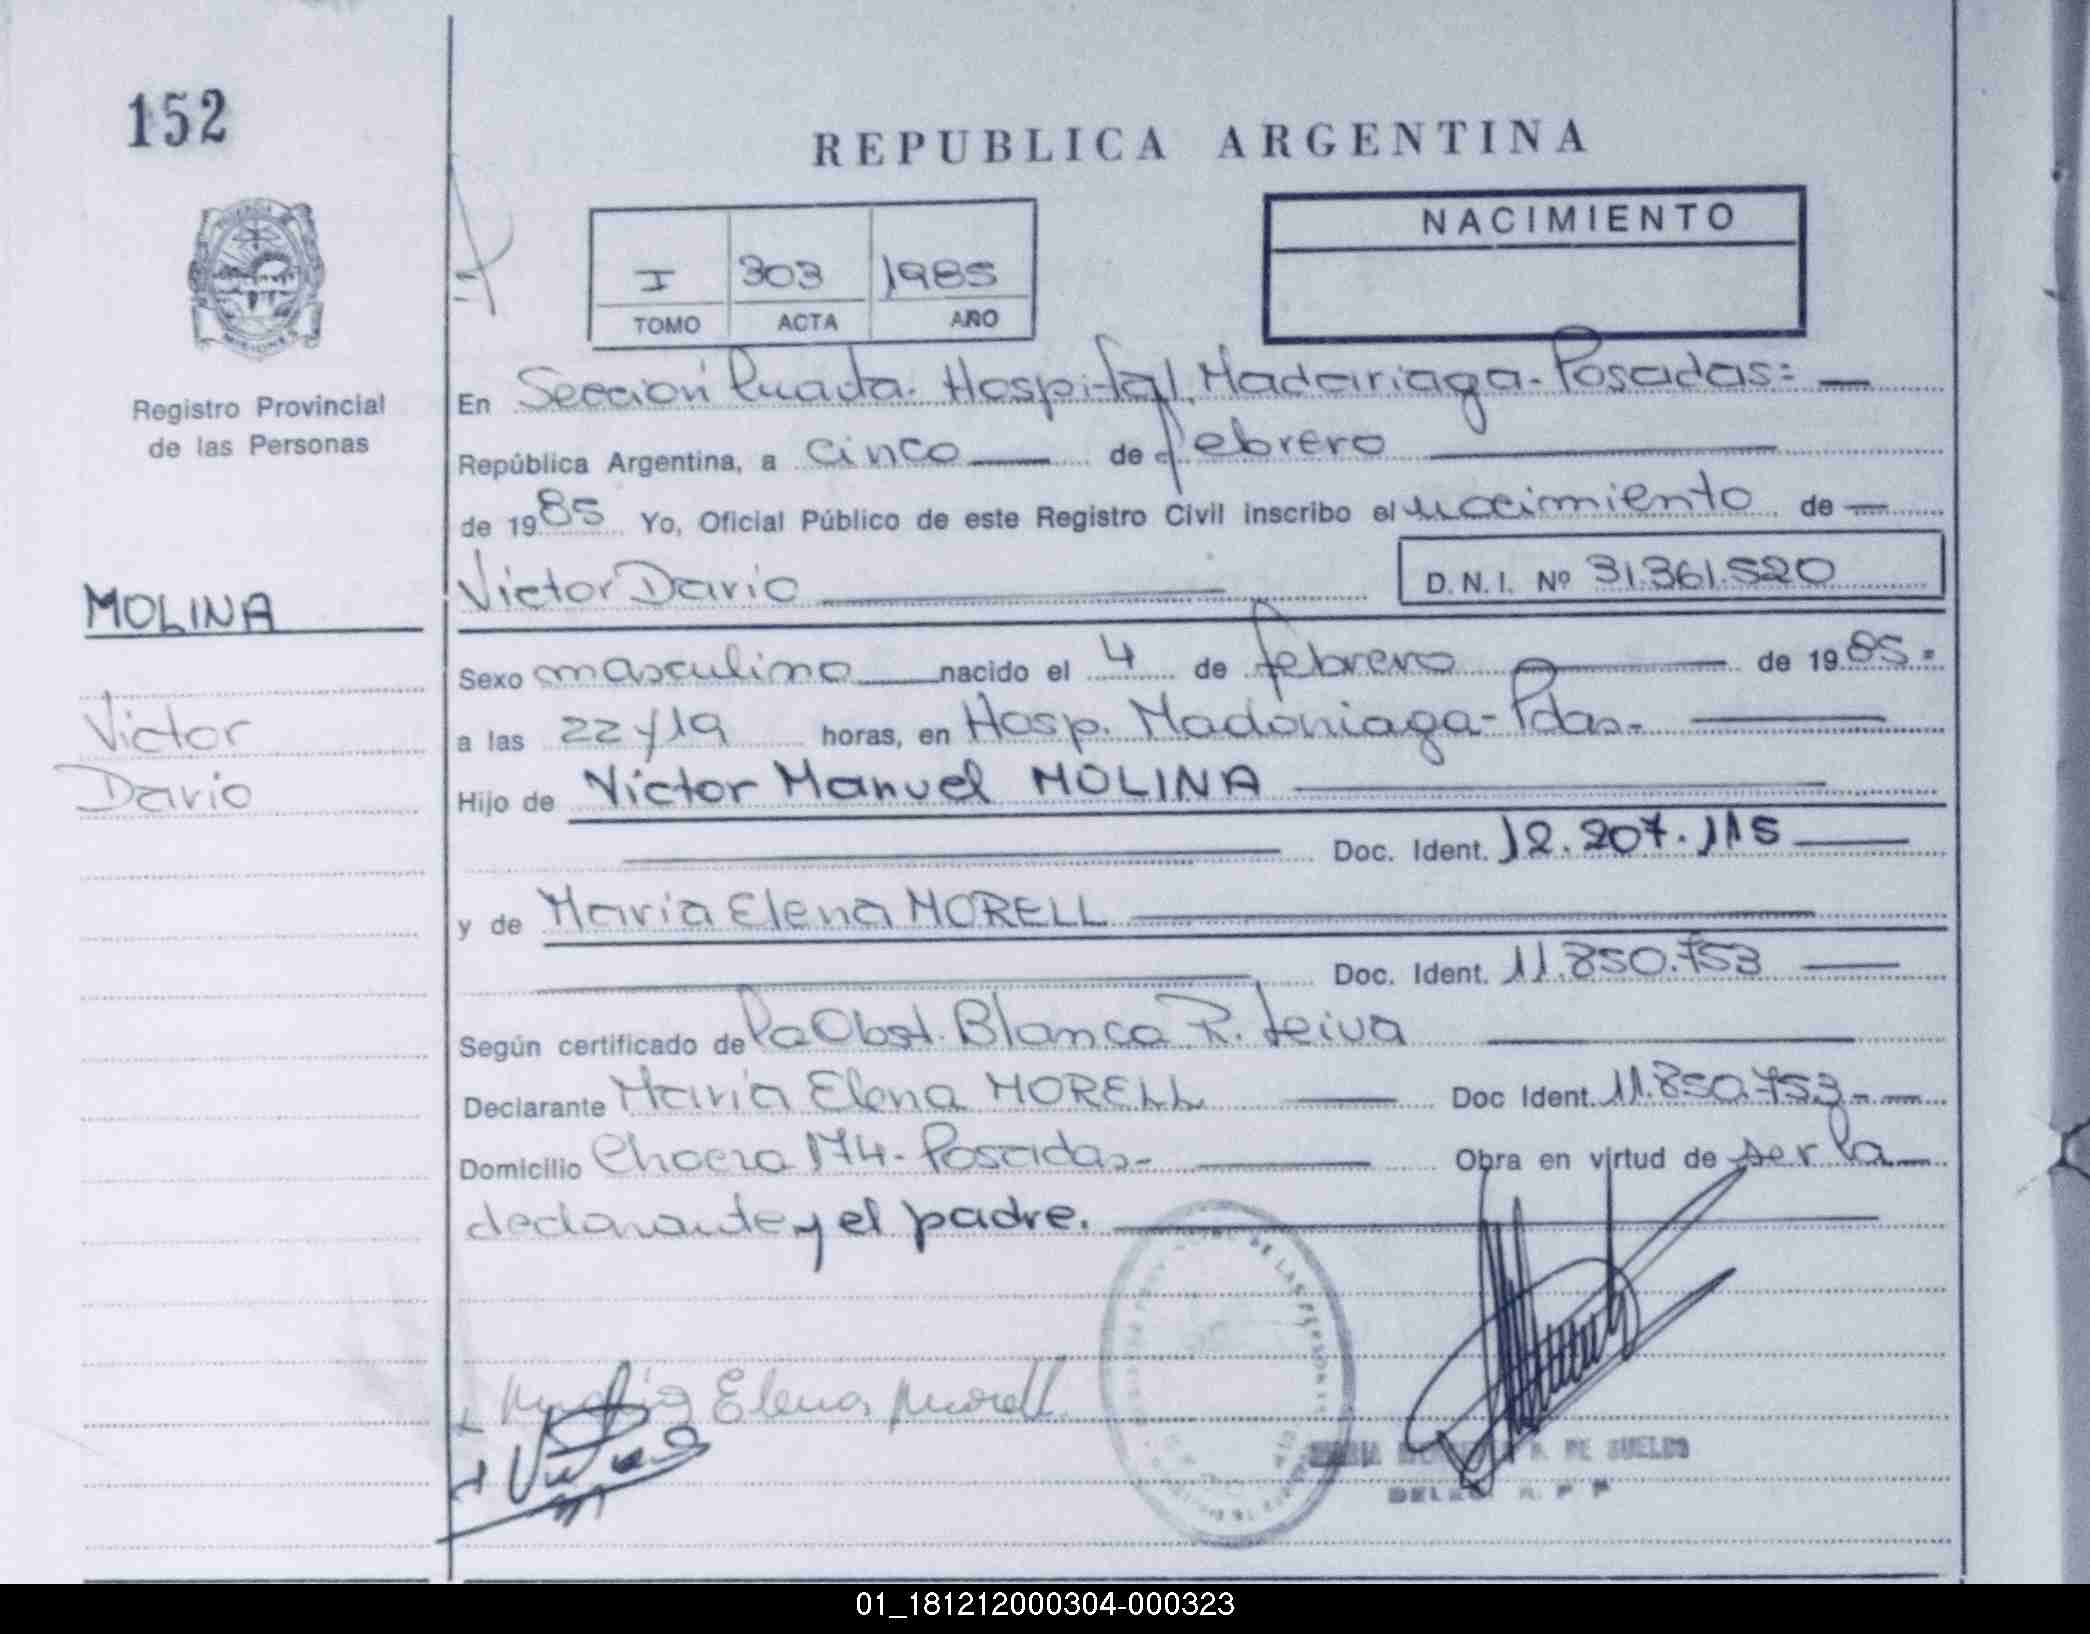 152
REPUBLICA ARGENTINA
NACIMIENTO
I 303 1985
TOMO ACTA AÑO
Registro Provincial
de las Personas
En Sección Cuarta. Hospital Madariaga-Posadas=
República Argentina, a cinco de febrero
de 1985 Yo, Oficial Público de este Registro Civil inscribo el nacimiento de
MOLINA
Victor Dario D.N.I. Nº 31.361.520
Sexo masculino nacido el 4 de febrero de 1985.=
Victor
a las 22y19 horas, en Hosp. Madariaga-Pdas.-
Dario
Hijo de Victor Manuel MOLINA
Doc. Ident. 12.207.115
y de Maria Elena MORELL
Doc. Ident. 11.850.753
Según certificado de la Obst. Blanca R. Leiva
Declarante Maria Elena MORELL Doc Ident. 11.850.753.-
Domicilio Chacra 174-Posadas.- Obra en virtud de ser la
declarante y el padre.
DE LAS PERSONAS
Elena Morell
DE SUELDO
01_181212000304-000323